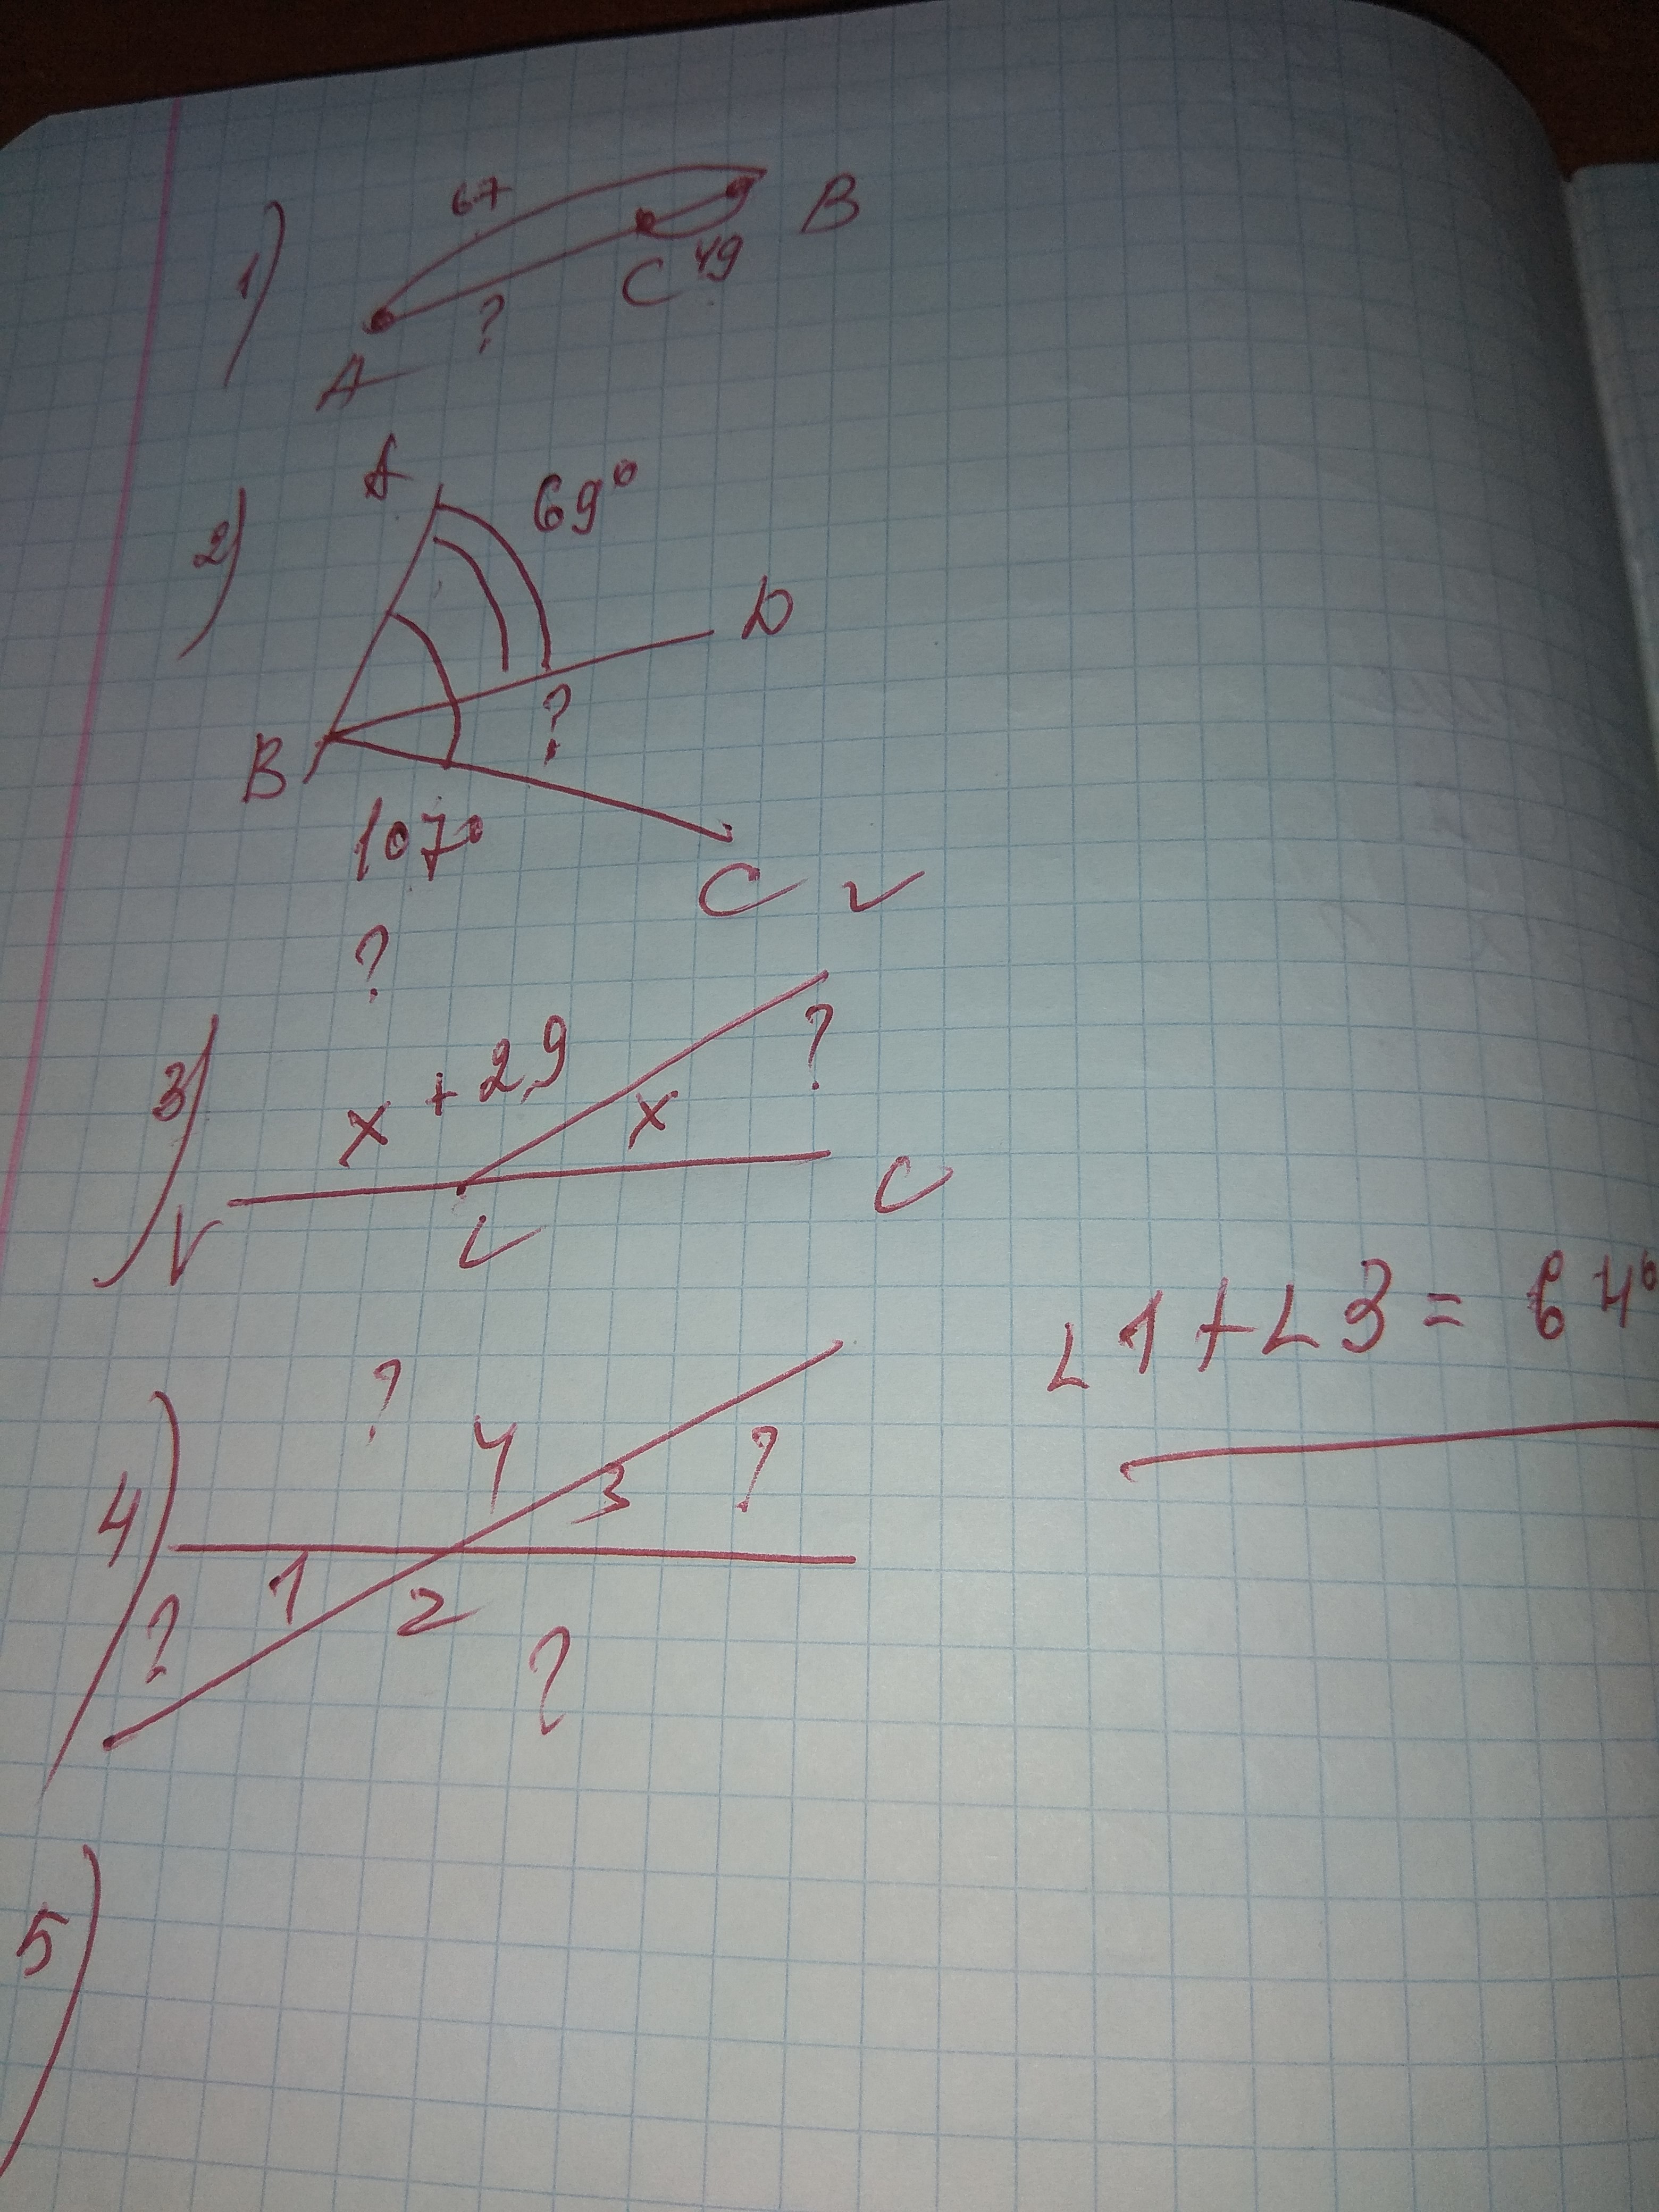 1) 67 B
C 49
A ?
2) A 69°
D
B ?
107°
C V
?
3) x + 29 x ?
N L C
∠1+∠3 = 64°
4) ? 4 3 ?
? 1 2
?
5)